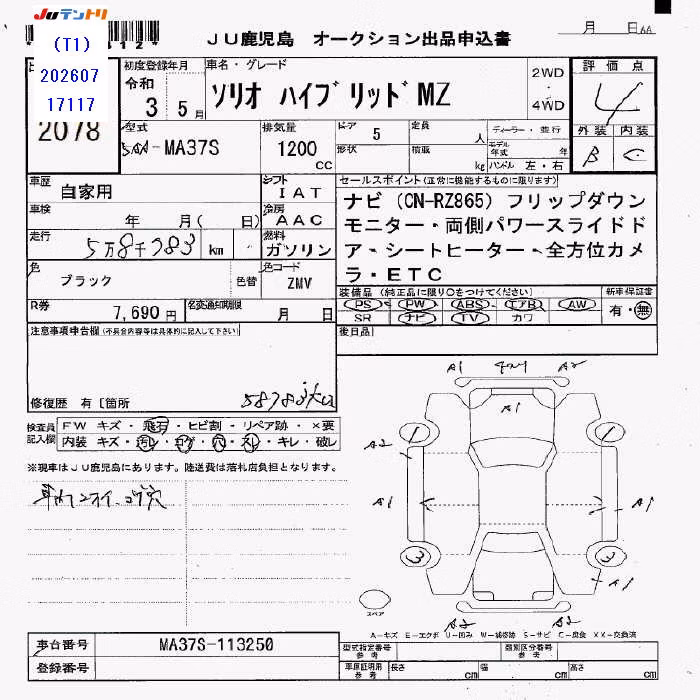 JUテントリ
(T1)
202607
17117
2078
JU鹿児島 オークション出品申込書
月 日
初度登録年月
令和 3 5月
車名・グレード
ソリオ ハイブリッド MZ
2WD
・
4WD
評価点
4
外装 内装
B C
型式
5AA-MA37S
排気量
1200
CC
ドア 5
形状
定員 人
積載 kg
ディーラー・並行
モデル年式 年
ハンドル 左・右
車歴
自家用
シフト
IAT
車検
年 月( 日)
冷房
AAC
走行
5万8千783 km
燃料
ガソリン
色
ブラック
色替
色コード
ZMV
R券
7,690円
名変通知期限
月 日
セールスポイント(正常に機能するものに限ります)
ナビ (CN-RZ865) フリップダウン
モニター・両側パワースライドド
ア・シートヒーター・全方位カメ
ラ・ETC
装備品 (純正品に限り○をつけてください)
PS PW ABS エアB AW
SR ナビ TV カワ
新車保証書
有・無
後日品
注意事項申告欄 (不具合内容等は具体的に記入して下さい)
修復歴 有 [箇所
58783
検査員
記入欄
FW キズ・飛石・ヒビ割・リペア跡・×要
内装 キズ・汚レ・コゲ・穴・スレ・キレ・破レ
※現車はJU鹿児島にあります。陸送費は落札店負担となります。
A1 A2
A1
A2
A1 A1
A2 A2
スペア
A-キズ E-エクボ U-凹み W-補修跡 S-サビ C-腐食 XX-交換済
車台番号
MA37S-113250
登録番号
型式指定番号
参考
類別区分番号
参考
車庫証明用
参考
長さ cm
幅 cm
高さ cm